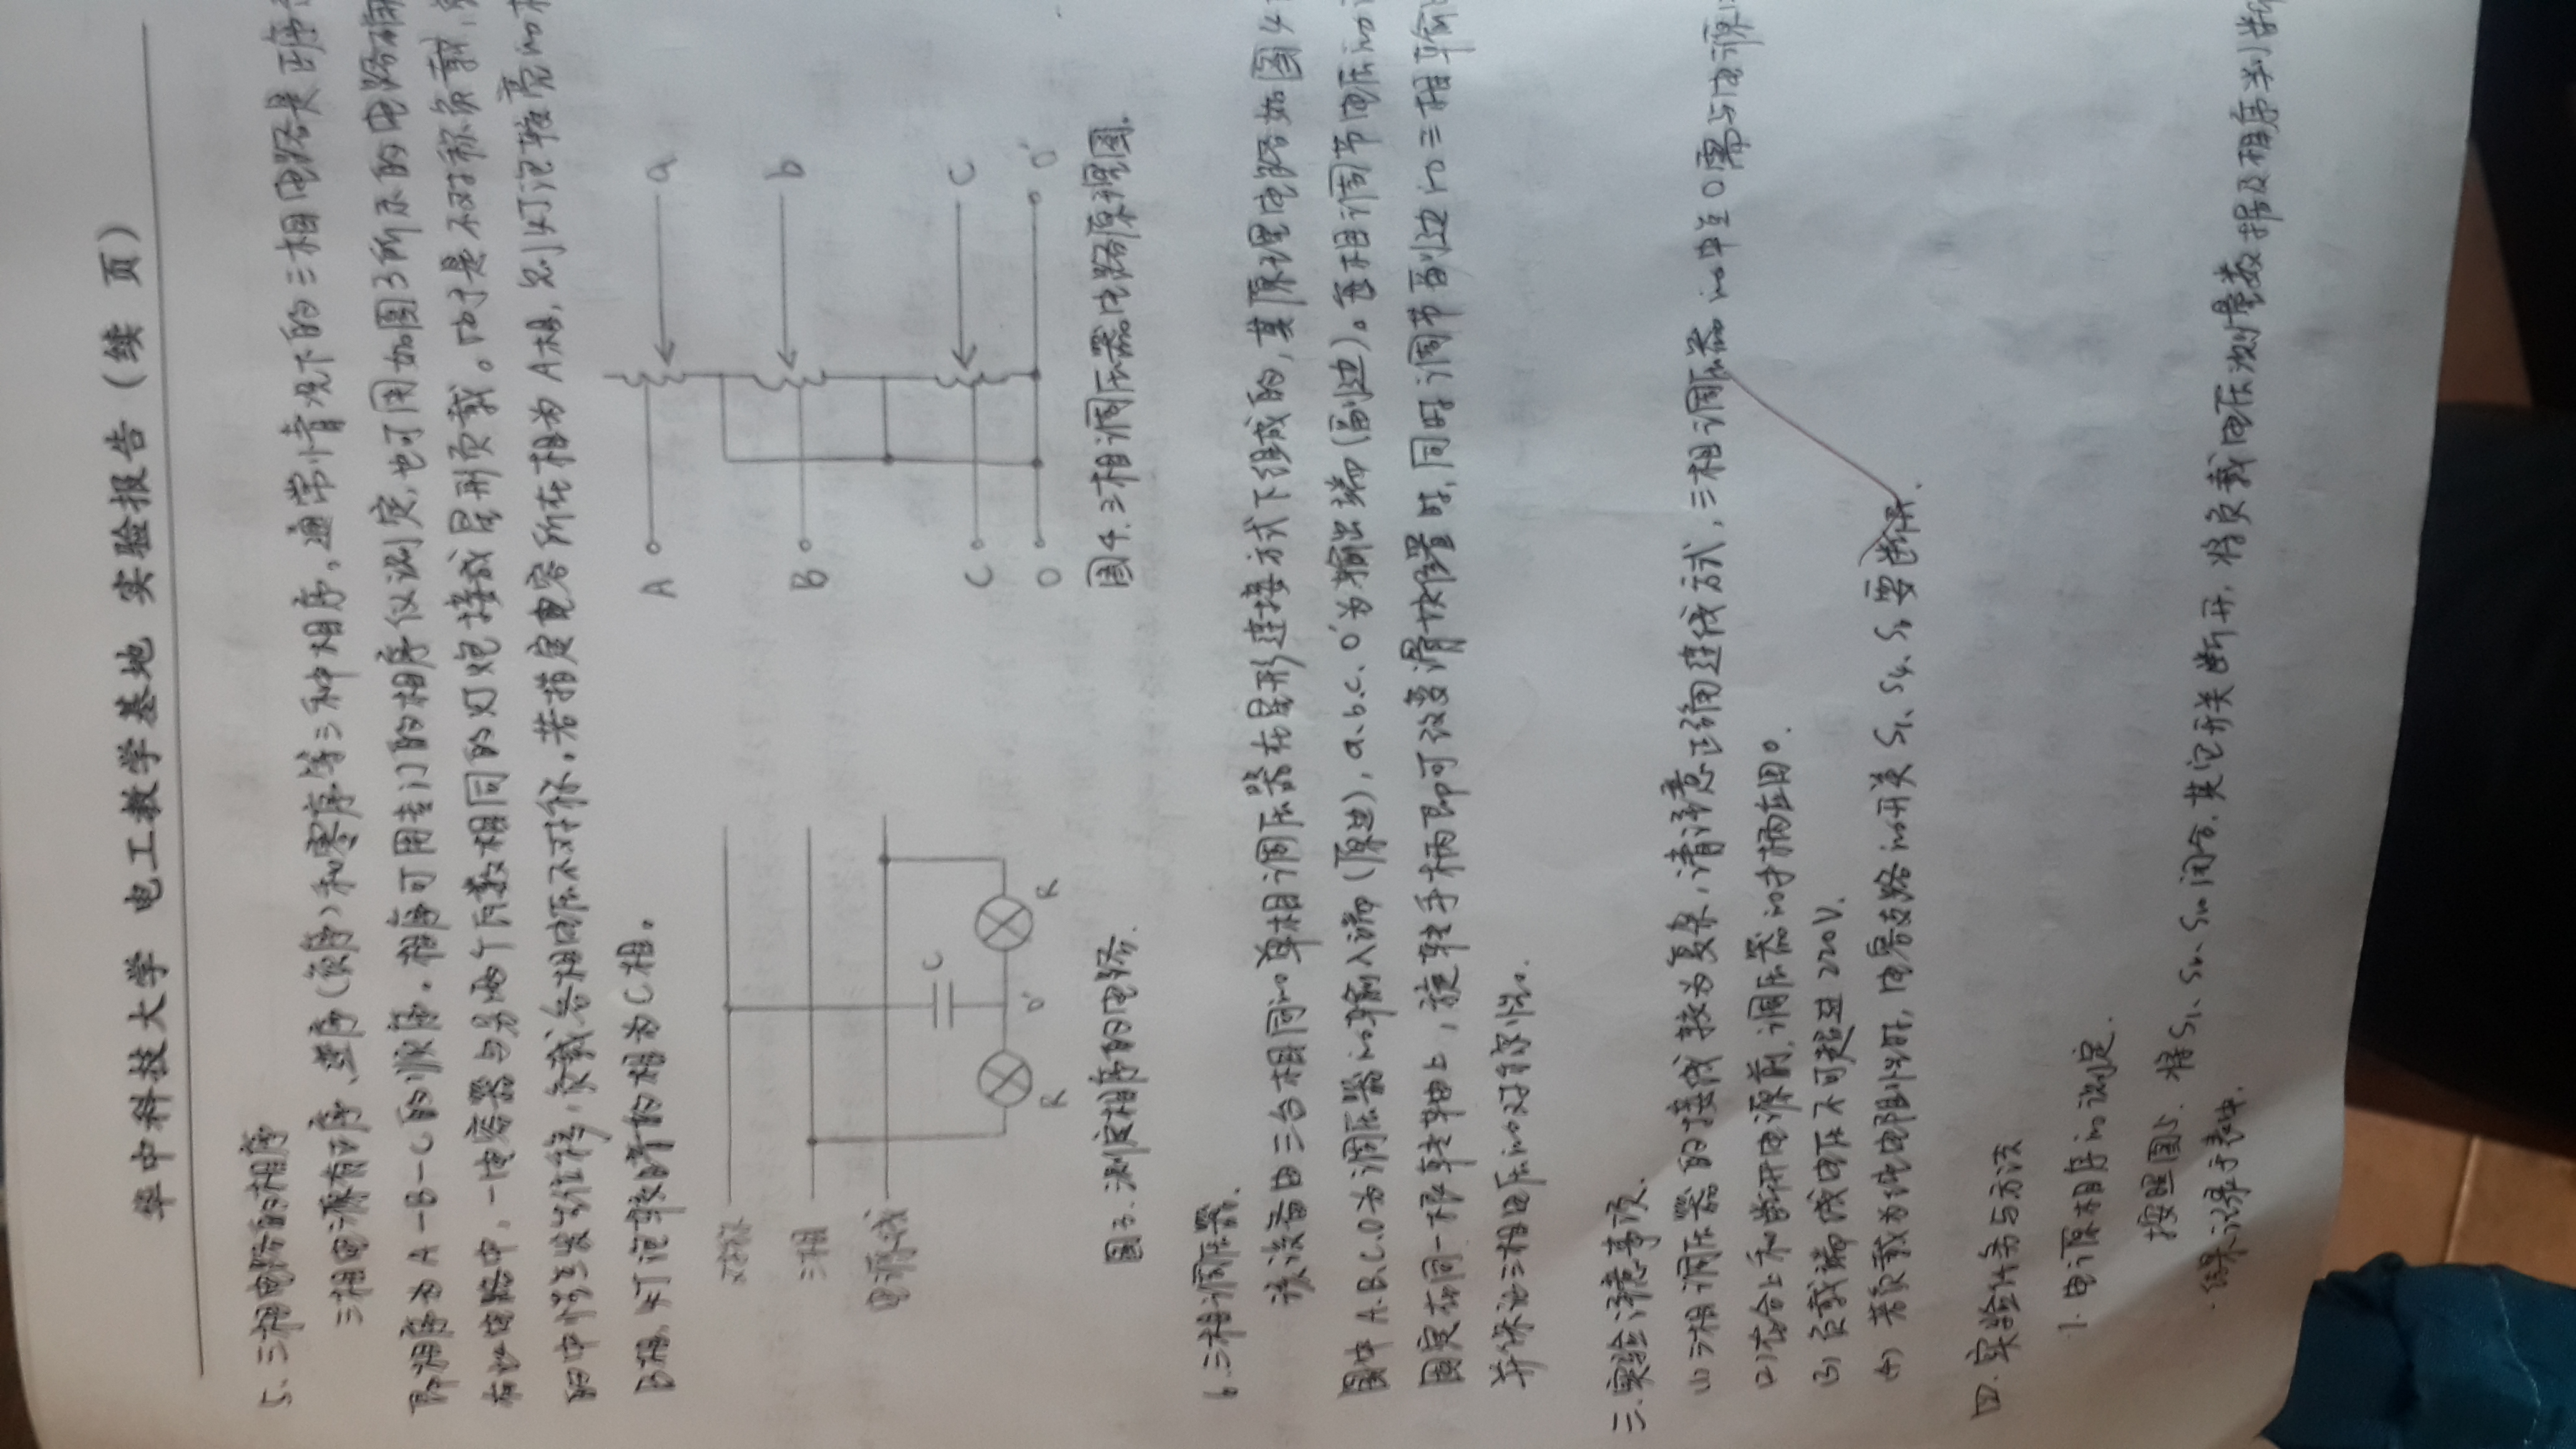 华中科技大学 电工教学基地 实验报告（续 页）
5、三相电路的相序
三相电源有正序、逆序(负序)和零序等三种相序。通常情况下的三相电路是正序
即相序为A-B-C的顺序。相序可用专门的相序仪测定,也可用如图3所示的电路确
在此电路中,一电容器与另两个瓦数相同的灯炮接成星形负载。由于是不对称负载,
的中性点发生位移,负载各相电压不对称。若指定电容所在相为A相,则灯泡较亮的
B相,灯泡较暗的相为C相。
A
a
对称
三相
B
b
电源线
C
C
C
R
O'
R
O
O'
图3.测定相序的电路.
图4.三相调压器电路原理图.
6.三相调压器.
该设备由三台相同的单相调压器在星形连接方式下组成的,其原理电路如图4
图中A.B.C.O为调压器的输入端(原边),a.b.c.O'为输出端(副边)。每相调节电压的
固定在同一根转轴上,旋转手柄即可改变滑块位置时,同时调节副边的三相输
并保证三相电压的对称性.
三.实验注意事项.
(1)三相调压器的接线较为复杂,请注意正确连线方式,三相调压器的中点O需与电源
(2)在合上和断开电源前,调压器的手柄应回0.
(3)负载端线电压不可超过220V.
(4)若负载为纯电阻性时,电容支路的开关S1、S4、要断开.
四.实验任务与方法
1.电源相序的测定.
按照图5.将S1、闭合,其它开关断开,将负载电压测量数据及相序判断
结果记录于表中.